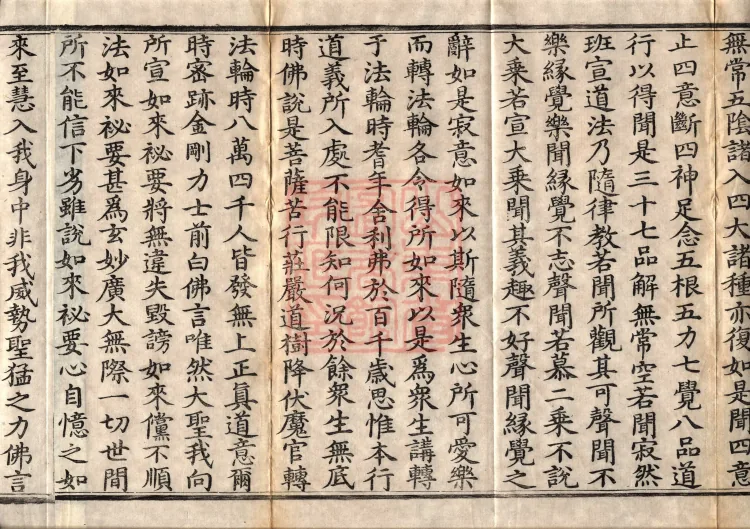 無常五陰諸入四大諸種亦復如是聞四意
止四意斷四神足念五根五力七覺八品道
行以得聞是三十七品解無常空若聞寂然
班宣道法乃隨律教若聞所觀其可聲聞不
樂緣覺樂聞緣覺不志聲聞若慕二乘不說
大乘若宣大乘聞其義趣不好聲聞緣覺之
辭如是寂意如來以斯隨衆生心所可愛樂
而轉法輪各令得所如來以是爲衆生講轉
于法輪時耆年舍利弗於百千歲思惟本行
道義所入處不能限知何況於餘衆生無底
時佛說是菩薩苦行莊嚴道樹降伏魔官轉
法輪時八萬四千人皆發無上正真道意爾
時密跡金剛力士前白佛言唯然大聖我向
所宣如來祕要將無違失毀謗如來儻不順
法如來祕要甚爲玄妙廣大無際一切世間
所不能信下劣雖說如來祕要心自憶之如
來至慧入我身中非我威勢聖猛之力佛言